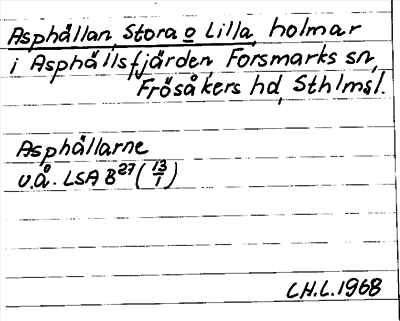 Asphällan, Stora o Lilla, holmar
i Asphällsfjärden, Forsmarks sn,
Frösåkers hd, Sthlms l.
Asphällarne
u.å. LSA B27 (13/1)
C.H.L. 1968